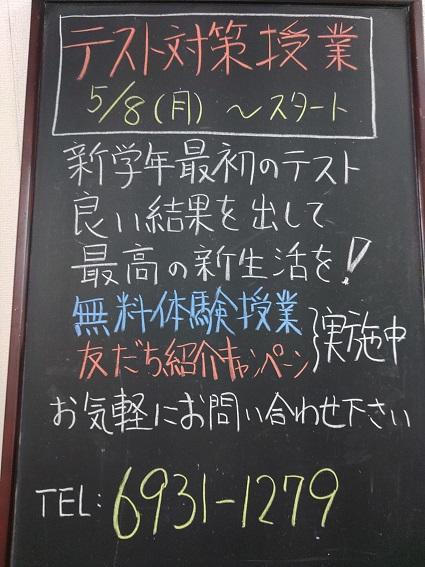 テスト対策授業
5/8(月) ～スタート
新学年最初のテスト
良い結果を出して
最高の新生活を!
無料体験授業
友だち紹介キャンペーン
実施中
お気軽にお問い合わせ下さい
TEL: 6931-1279